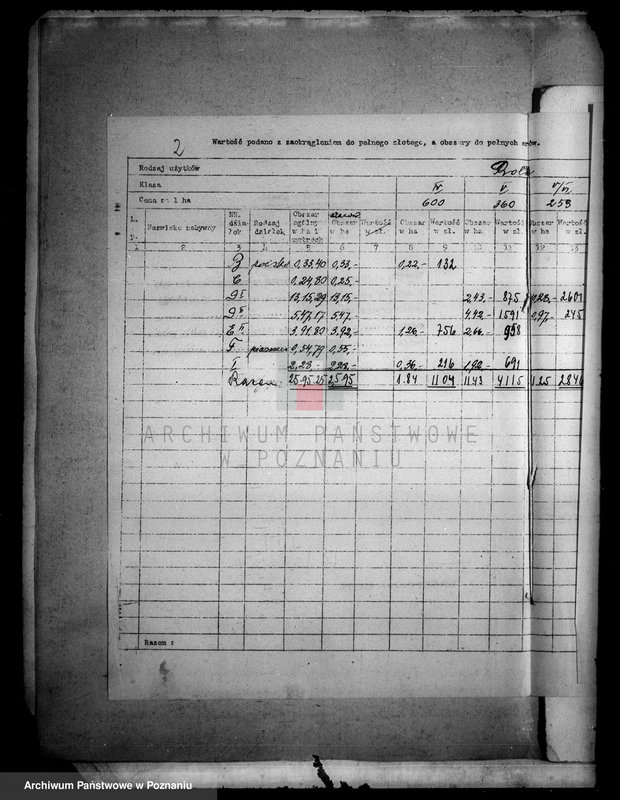 2
Wartość podano z zaokrągleniem do pełnego złotego, a obszary do pełnych arów.
Rodzaj użytków
Klasa IV V V/VI
Cena za 1 ha 600 360 253
L. p. Nazwisko nabywcy NN. działek Rodzaj działek Obszar ogólny w ha i metrach Obszar w ha Wartość w zł. Obszar w ha Wartość w zł. Obszar w ha Wartość w zł. Obszar w ha Wartość w zł.
1 2 3 4 5 6 7 8 9 10 11 12 13
0,33,40 0,33,- 0,22,- 132
0,24,80 0,25,-
13,15,29 13,15,- 2,43,- 875 2601
5,47,17 5,47,- 4,42,- 1591 0,97,- 245
3,91,80 3,92,- 1,26,- 756 2,66,- 958
F 0,54,79 0,55,-
2,23,- 0,36,- 216 1,92,- 691
Razem 25.95.25 25.95 1.84 1104 11.43 4115 2846
ARCHIWUM PAŃSTWOWE
W POZNANIU
Razem :
Archiwum Państwowe w Poznaniu